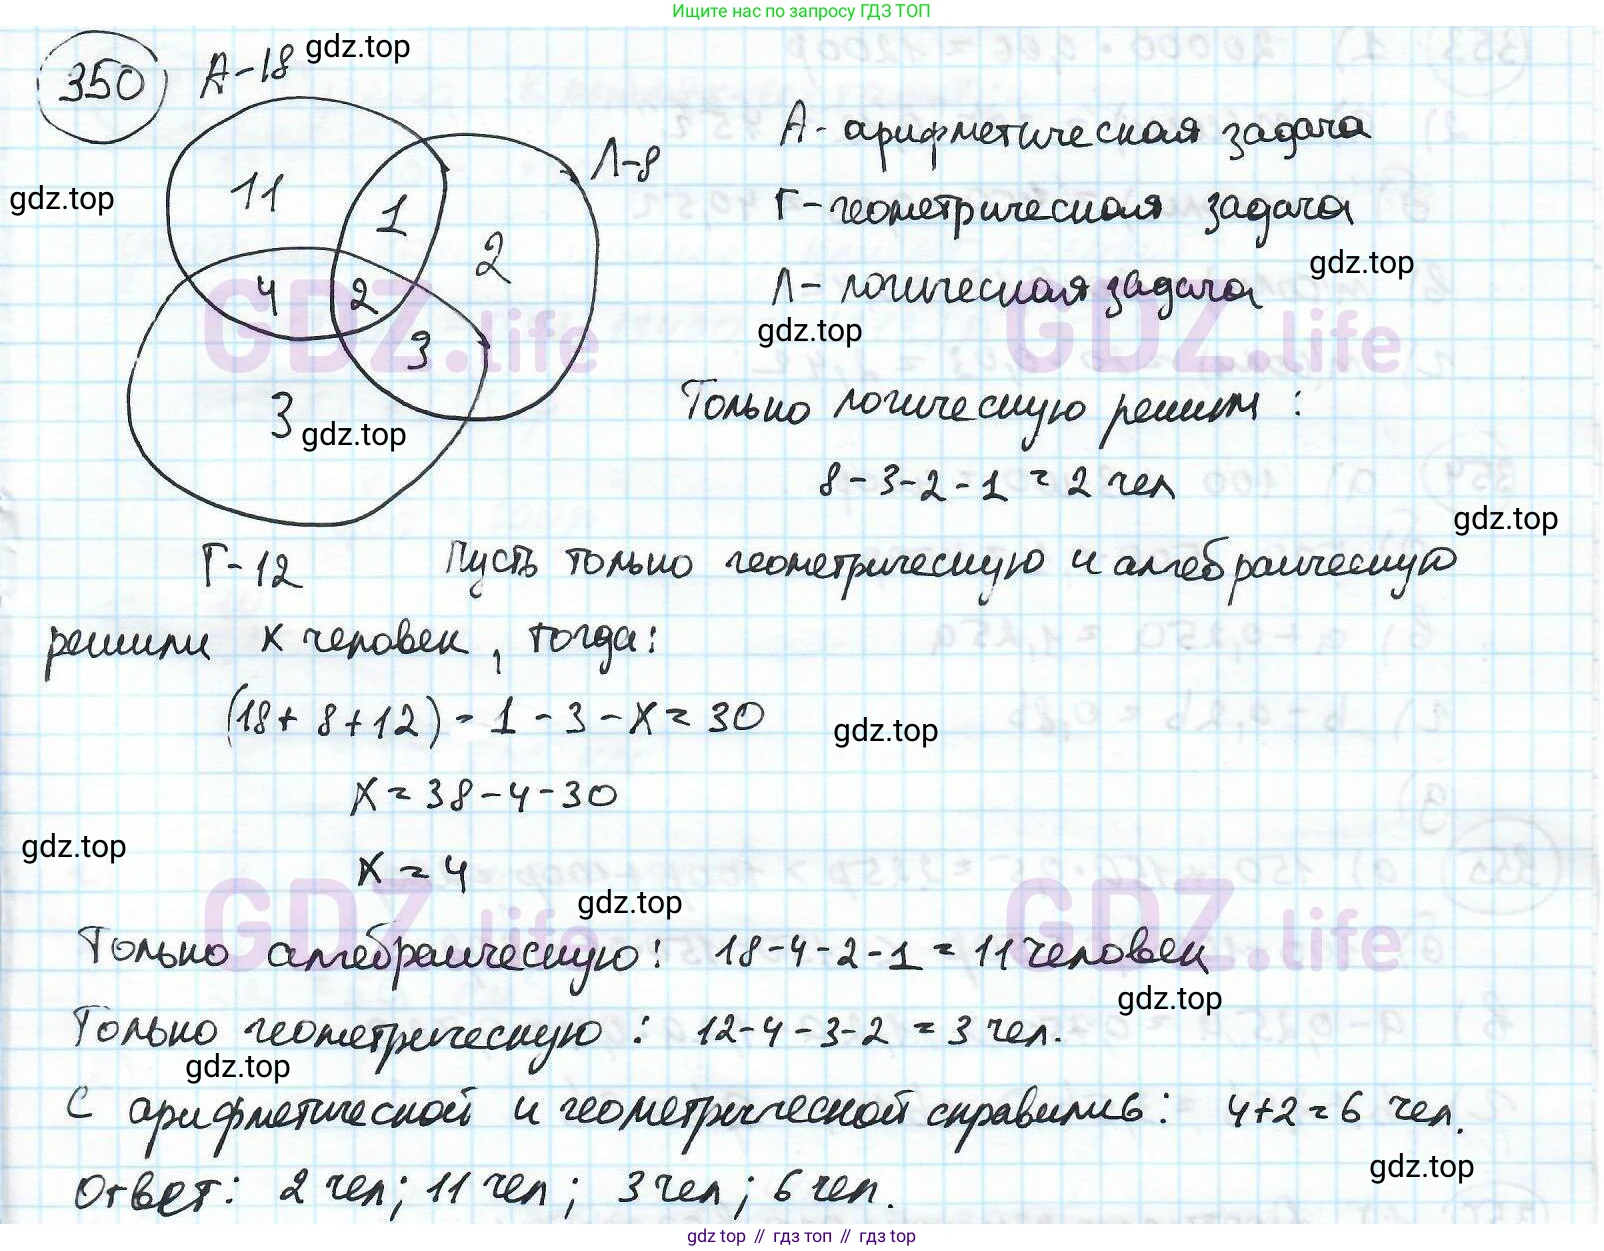 Ищите нас по запросу ГДЗ ТОП
350 А-18 gdz.top
Л-8
gdz.top
11 1 2
4 2 3
3
gdz.top
Г-12
А- арифметическая задача
Г-геометрическая задача
gdz.top
Л- логическая задача
gdz.top
GDZ.life GDZ.life
Только логическую решили:
8-3-2-1=2 чел
gdz.top
Пусть только геометрическую и алгебраическую
решили x человек, тогда:
(18+8+12)-1-3-x=30
gdz.top
x=38-4-30
gdz.top
x=4
gdz.top
GDZ.life GDZ.life
Только алгебраическую: 18-4-2-1=11 человек
gdz.top
Только геометрическую: 12-4-3-2=3 чел.
gdz.top
С арифметической и геометрической справились: 4+2=6 чел.
gdz.top
Ответ: 2 чел; 11 чел; 3 чел; 6 чел.
gdz top // гдз топ // гдз top